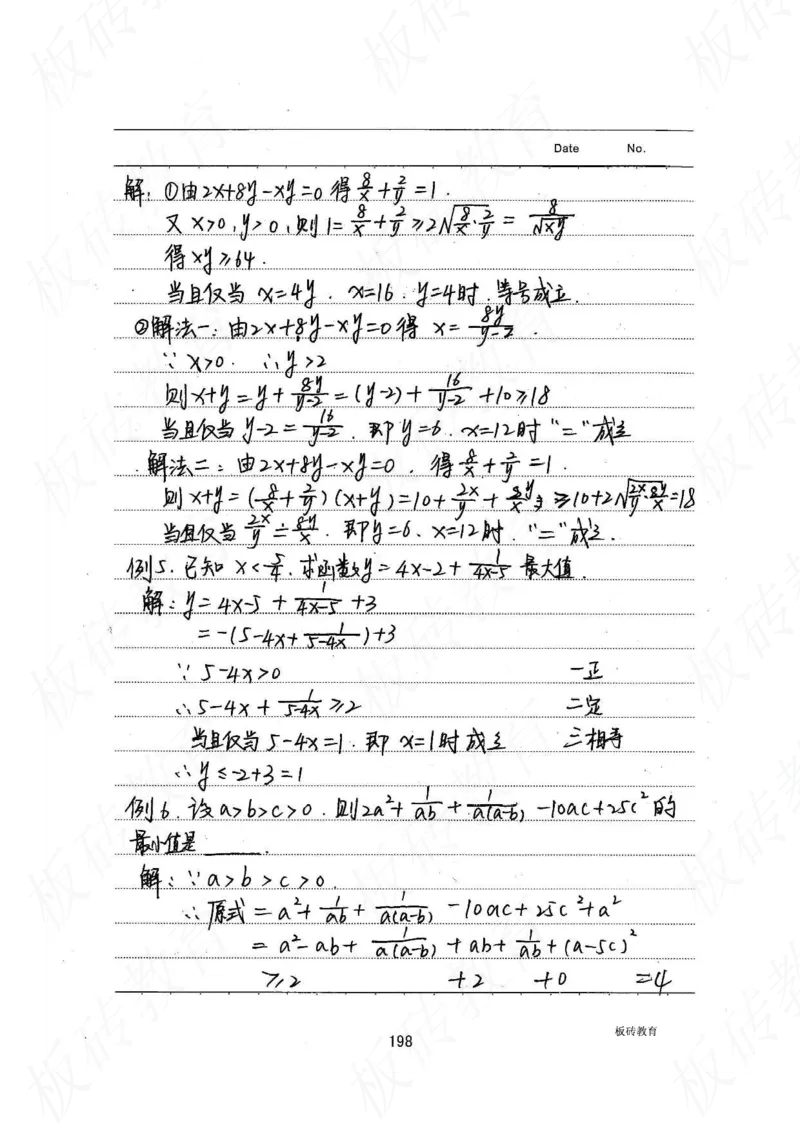 Date No.
解: ①由2x+8y-xy=0 得 8/x + 2/y =1.
又 x>0, y>0, 则 1= 8/x + 2/y ≥2√(8/x·2/y) = 8/√(xy)
得 xy≥64.
当且仅当 x=4y. x=16. y=4时. 等号成立.
②解法一: 由2x+8y-xy=0得 x= 8y/(y-2) .
∵ x>0. ∴y>2
则x+y=y+ 8y/(y-2) =(y-2)+ 16/(y-2) +10≥18
当且仅当 y-2= 16/(y-2) . 即y=6. x=12时 "="成立
解法二: 由2x+8y-xy=0, 得 8/x + 2/y =1.
则 x+y=(8/x + 2/y)(x+y)=10+ 2x/y + 8y/x ≥10+2√(2x/y·8y/x)=18
当且仅当 2x/y = 8y/x . 即y=6、x=12时. "="成立.
例5. 已知 x<5/4, 求函数y=4x-2+ 1/(4x-5) 最大值.
解: y=4x-5+ 1/(4x-5) +3
=-(5-4x+ 1/(5-4x) )+3
∵ 5-4x>0 一正
∴5-4x+ 1/(5-4x) ≥2 二定
当且仅当 5-4x=1. 即 x=1时成立 三相等
∴y≤-2+3=1
例6. 设a>b>c>0. 则2a²+ 1/ab + 1/a(a-b) -10ac+25c²的
最小值是______.
解: ∵a>b>c>0.
∴原式=a²+ 1/ab + 1/a(a-b) -10ac+25c²+a²
=a²-ab+ 1/a(a-b) +ab+ 1/ab +(a-5c)²
≥2 +2 +0 =4
板砖教育
198